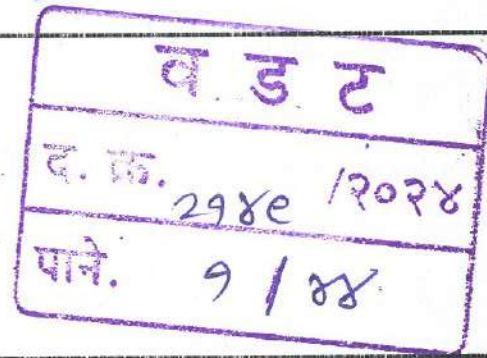 व ड ट
द. क्र. २१४९ /२०२४
पाने. १ / ४४